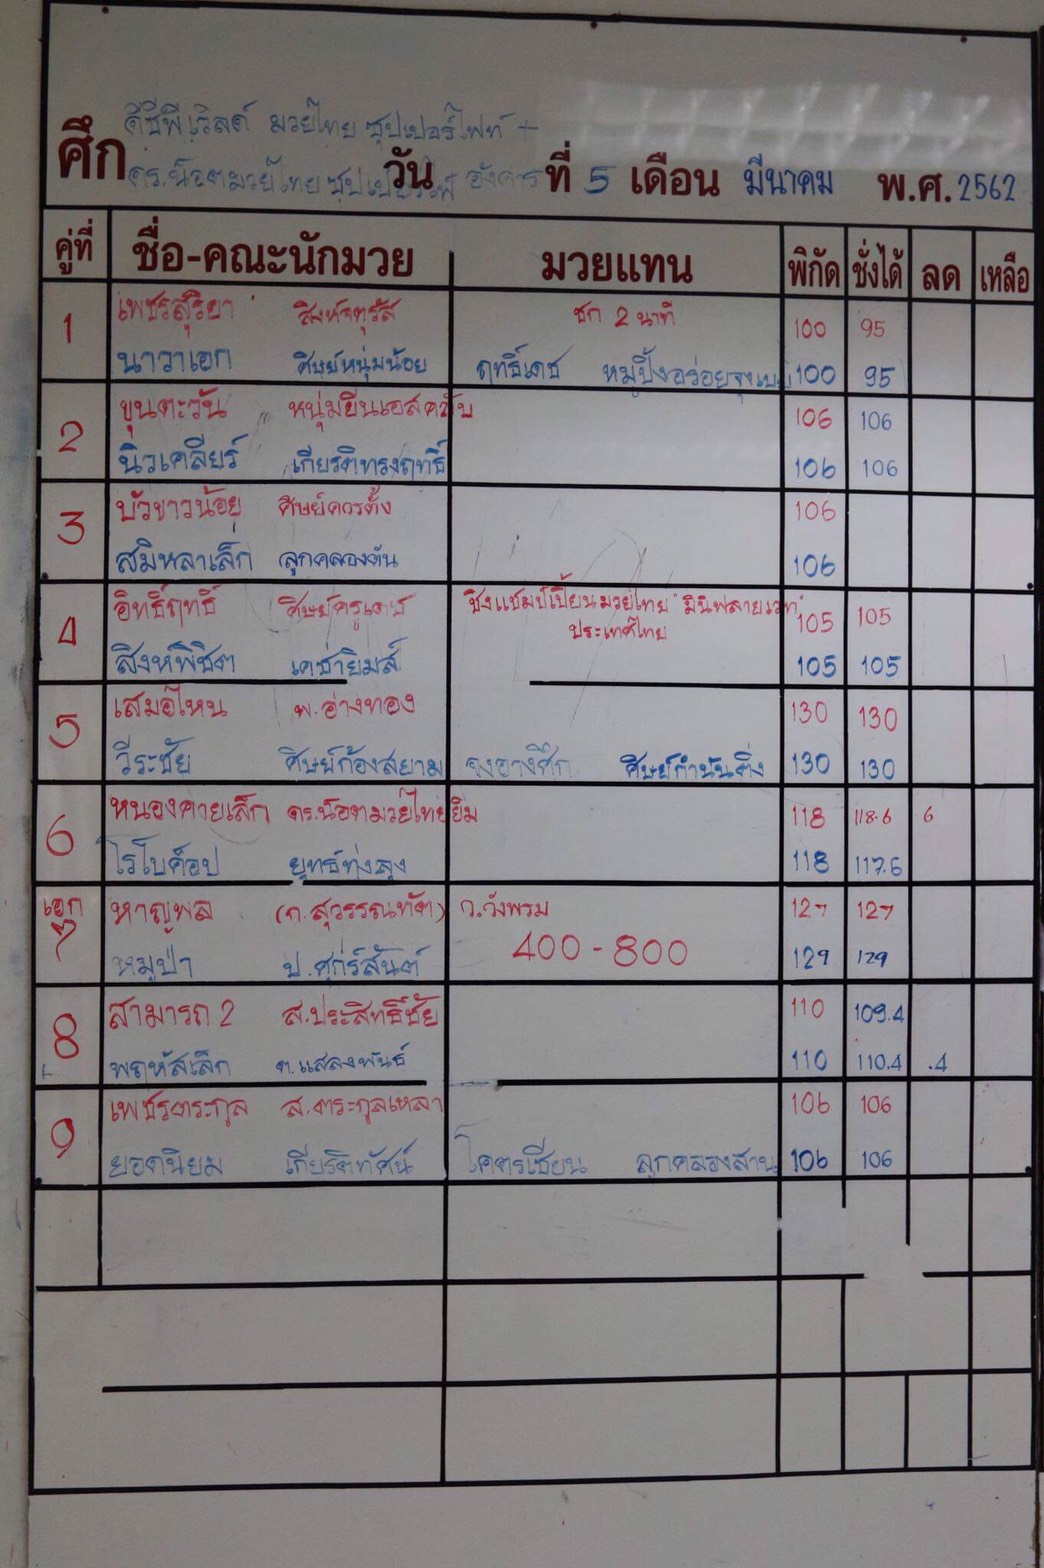 ศึก ดีบีพีเวิลด์ มวยไทย ซุปเปอร์ไฟท์ +
ดร.น็อตมวยไทย วัน อังคาร ที่ 5 เดือน มีนาคม พ.ศ. 2562
คู่ที่ ชื่อ-คณะนักมวย มวยแทน พิกัด ชั่งได้ ลด เหลือ
1 เพชรสุริยา สิงห์จตุรัส ชก 2 นาที 100 95
นาวาเอก ศิษย์หนุ่มน้อย ฤทธิ์เดช หมูปิ้งอร่อยจุงเบย 100 95
2 ขุนตะวัน หนุ่มยืนเอสคลับ 106 106
นิวเคลียร์ เกียรติทรงฤทธิ์ 106 106
3 บัวขาวน้อย ศิษย์ควรตั้ง 106
สมิหลาเล็ก ลูกคลองตัน 106
4 อิทธิ์ฤทธิ์ ศิษย์ครูเดช ชิงแชมป์เปี้ยนมวยไทย "มินิฟลายเวท" 105 105
ประเทศไทย
สิงห์พิชิต เดช่ายิมส์ 105 105
5 เสมอไหน พ.อ่างทอง 130 130
วีระชัย ศิษย์ก้องสยาม จงอางศึก ศิษย์กำนันติ่ง 130 130
6 หนองคายเล็ก ดร.น็อตมวยไทยยิม 118 118.6 6
โรโบค็อป ยุทธ์ทุ่งลุง 118 117.6
เอก 7 หาญพล (ก.สุวรรณทัต) ว.วังพรม 127 127
400-800
หมูป่า ป.ศุกร์สันต์ 129 129
8 สามารถ 2 ส.ประสิทธิ์ชัย 110 109.4
พฤหัสเล็ก ต.แสลงพันธ์ 110 110.4 .4
9 เพชรตระกูล ส.ตระกูลเหลา 106 106
ยอดนิยม เกียรติทัศน์ โคตรเซียน ลูกคลองสาน 106 106